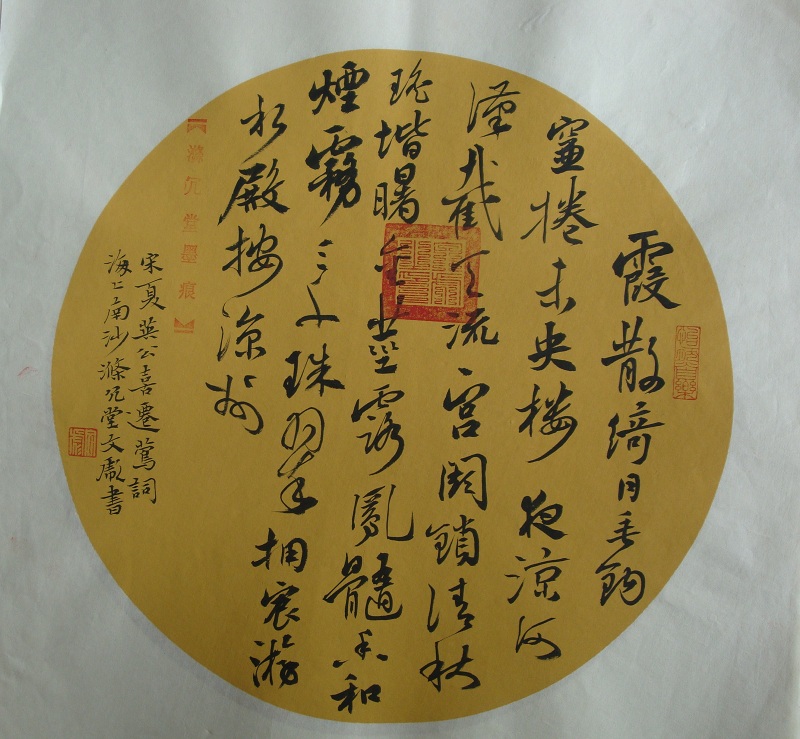 霞散綺月垂鈎
簾捲未央楼夜涼河
漢截天流宮闕鎖清秋
瑤堦曙金莖露鳳髓香和
煙霧三千珠翠擁宸游
水殿按涼州
【滌凡堂墨痕】
宋夏英公喜遷鶯詞
海上南沙滌凡堂文書